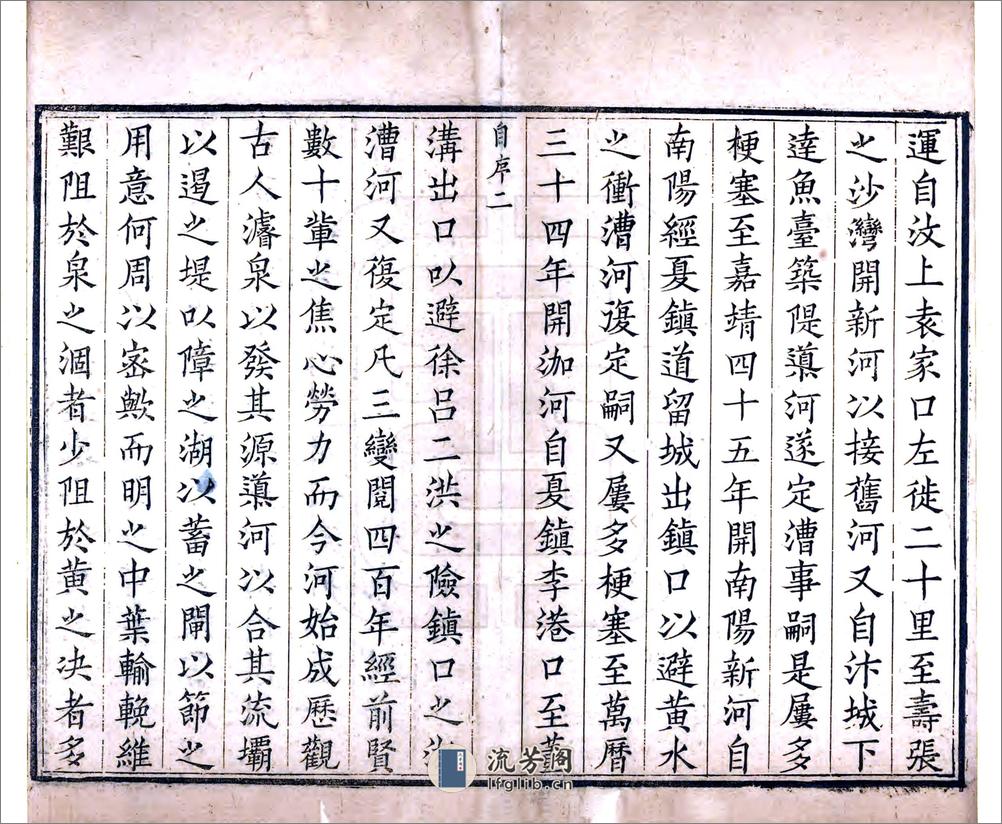 運自汶上袁家口左徙二十里至壽張
之沙灣開新河以接舊河又自汴城下
達魚臺築隄導河遂定漕事嗣是屢多
梗塞至嘉靖四十五年開南陽新河自
南陽經夏鎮道留城出鎮口以避黃水
之衝漕河復定嗣又屢多梗塞至萬曆
三十四年開泇河自夏鎮李港口至
自序二
溝出口以避徐呂二洪之險鎮口之
漕河又復定凡三變閱四百年經前賢
數十輩之焦心勞力而今河始成歷觀
古人濬泉以發其源導河以合其流壩
以遏之堤以障之湖以蓄之閘以節之
用意何周以密歟而明之中葉輸輓維
艱阻於泉之涸者少阻於黃之決者多
流芳閣
lfglib.cn